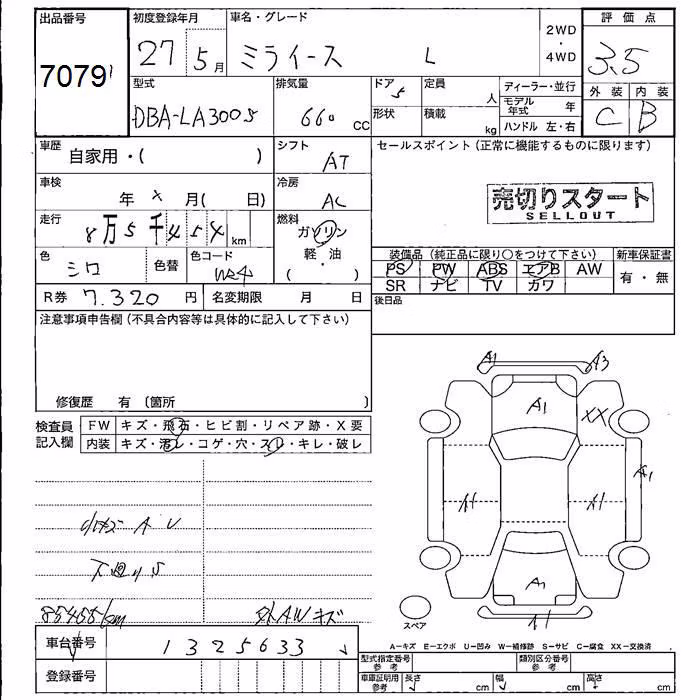 出品番号 初度登録年月 車名・グレード 2WD ・ 4WD 評価点
7079 27 5月 ミライース L 3.5
型式 排気量 ドア 5 定員 人 ディーラー・並行 外装 内装
DBA-LA300S 660 CC 形状 積載 kg モデル年式 年 C B
ハンドル 左・右
車歴 自家用・( ) シフト AT セールスポイント (正常に機能するものに限ります)
車検 年 x 月( 日) 冷房 AC 売切りスタート
SELLOUT
走行 8万5千454km 燃料 ガソリン
軽・油
( )
装備品 (純正品に限り○をつけて下さい) 新車保証書
色 シロ 色替 色コード PS PW ABS エアB AW 有・無
SR ナビ TV カワ
R券 7.320円 名変期限 月 日 後日品
注意事項申告欄 (不具合内容等は具体的に記入して下さい)
修復歴 有 〔箇所 〕
検査員記入欄 FW キズ・飛石・ヒビ割・リペア跡・X要
内装 キズ・汚レ・コゲ・穴・スレ・キレ・破レ
A1 A3
A1 XX
A1 A1 A1
小キズ A U
下廻りS
A1
85455km 外AWキズ A1
スペア
A−キズ E−エクボ U−凹み W−補修跡 S−サビ C−腐食 XX−交換済
車台番号 1325633
型式指定番号 参考 類別区分番号 参考
登録番号 車庫証明用 参考 長さ cm 幅 cm 高さ cm